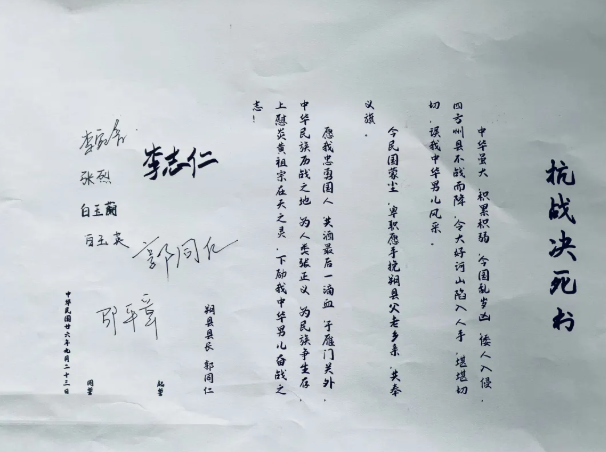 抗战决死书
中华虽大，积累积弱，今国乱岁凶，倭人入侵，
四方州县不战而降，令大好河山陷入人手，堪堪切
切，误我中华男儿风采。
今民国蒙尘，卑职愿手挽朔县父老乡亲，共奉
义旗。
愿我忠勇国人，共洒最后一滴血，于雁门关外，
中华民族历战之地，为人类张正义，为民族争生存，
上慰炎黄祖宗在天之灵，下励我中华男儿奋战之
志！
朔县县长 郭同仁
起誓
李志仁
郭同仁
张烈
白玉兰
白玉英
同誓
中华民国廿六年九月二十三日